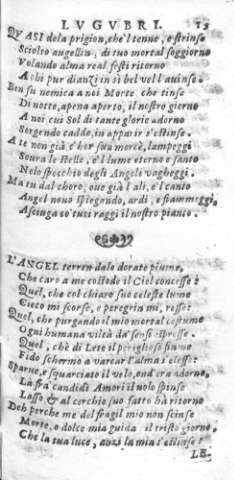 LVGVBRI. 15
QVASI de la prigion, che'l tenne, e strinse
Sciolto angellin, di tuo mortal soggiorno
Volando alma real festi ritorno
A chi pur dianzi in sì bel vel l'auinse.
Ben su nemica a noi Morte che tinse
Di notte, apena aperto, il nostro giorno
A noi, cui Sol di tante glorie adorno
Sorgendo cadde, in apparir s'estinse.
A te non già, c'hor sua mercè, lampeggi
Soura le stelle, e'l lume eterno e santo
Nelo specchio degli Angeli vagheggi.
Ma tu dal choro, oue già l'ali, e'l canto
Angel nouo spiegando, ardi, e fiammeggi,
Asciuga co' tuoi raggi il nostro pianto.
L'ANGEL terren da le dorate piume,
Che caro a me custode il Ciel concesse:
Quel, che col chiaro suo celeste lume
Cieco mi scorse, e peregrin mi, resse:
Quel, che purgando il mio mortal costume
Ogni humana viltà da' sensi oppresse:
Quel, chè di Lete il periglioso fiume
Fido schermo a varcar l'alma s'elesse:
Sparue, e squarciato il velo, ond'era adorno,
La fra candidi Amori il nolo spinse
Lasso & al cerchio suo fatto hà ritorno
Deh perche me del fragil mio non scinse
Morte, o dolce mia guida il tristo giorno,
Che la tua luce, anzi la mia s'estinse?
LE